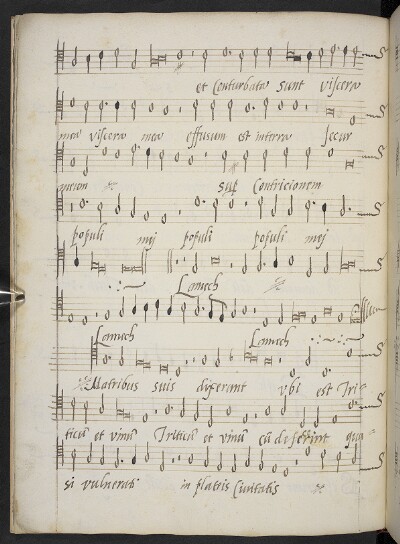 et Conturbata sunt viscera
mea viscera mea effusum est in terra Jecur
meum sup Contricionem
populi mej populi populi mej
Lamech
Lamech Lamech
Matribus suis dixerunt vbi est Tri=
ticu et vinū Triticū et vinū cū deficerint qua=
si vulnerati in plateis Civitatis